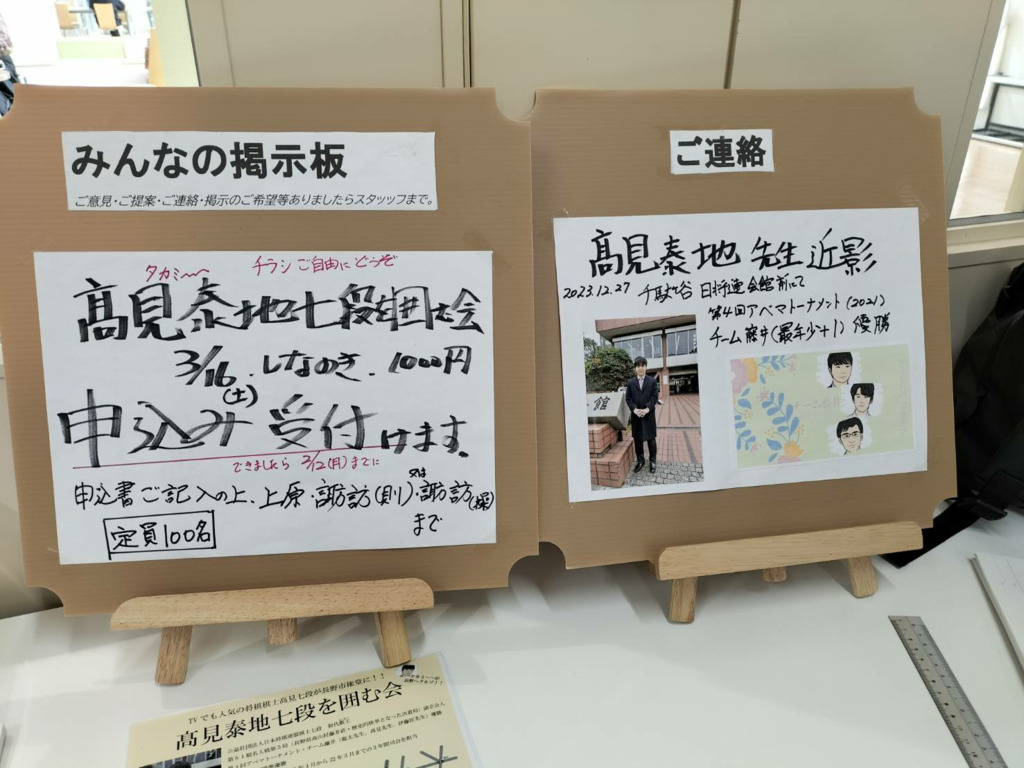 みんなの掲示板
ご意見・ご提案・ご連絡・掲示のご希望等ありましたらスタッッフまで。
タカミ〜 チラシご自由にどうぞ
髙見泰地七段を囲む会
3/16(土).しなのき.1000円
申込み受付けます。
できましたら 3/12(月)までに
申込書ご記入の上、上原・諏訪(則)又は・諏訪まで
定員100名
ご連絡
髙見泰地 先生 近影
2023.12.27 千駄ヶ谷 日将連会館前にて
第4回アベマトーナメント(2021)
チーム藤井(最年少+1)優勝
館
TVでも人気の将棋棋士高見七段が長野市権堂に!!
髙見泰地七段を囲む会